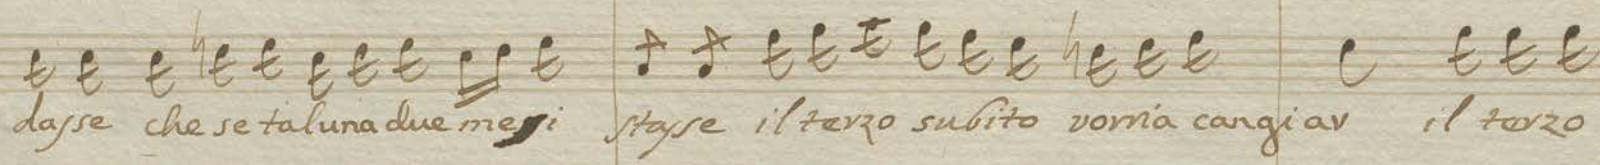 dasse che se taluna due mesi stasse il terzo subito vorria cangiar il terzo